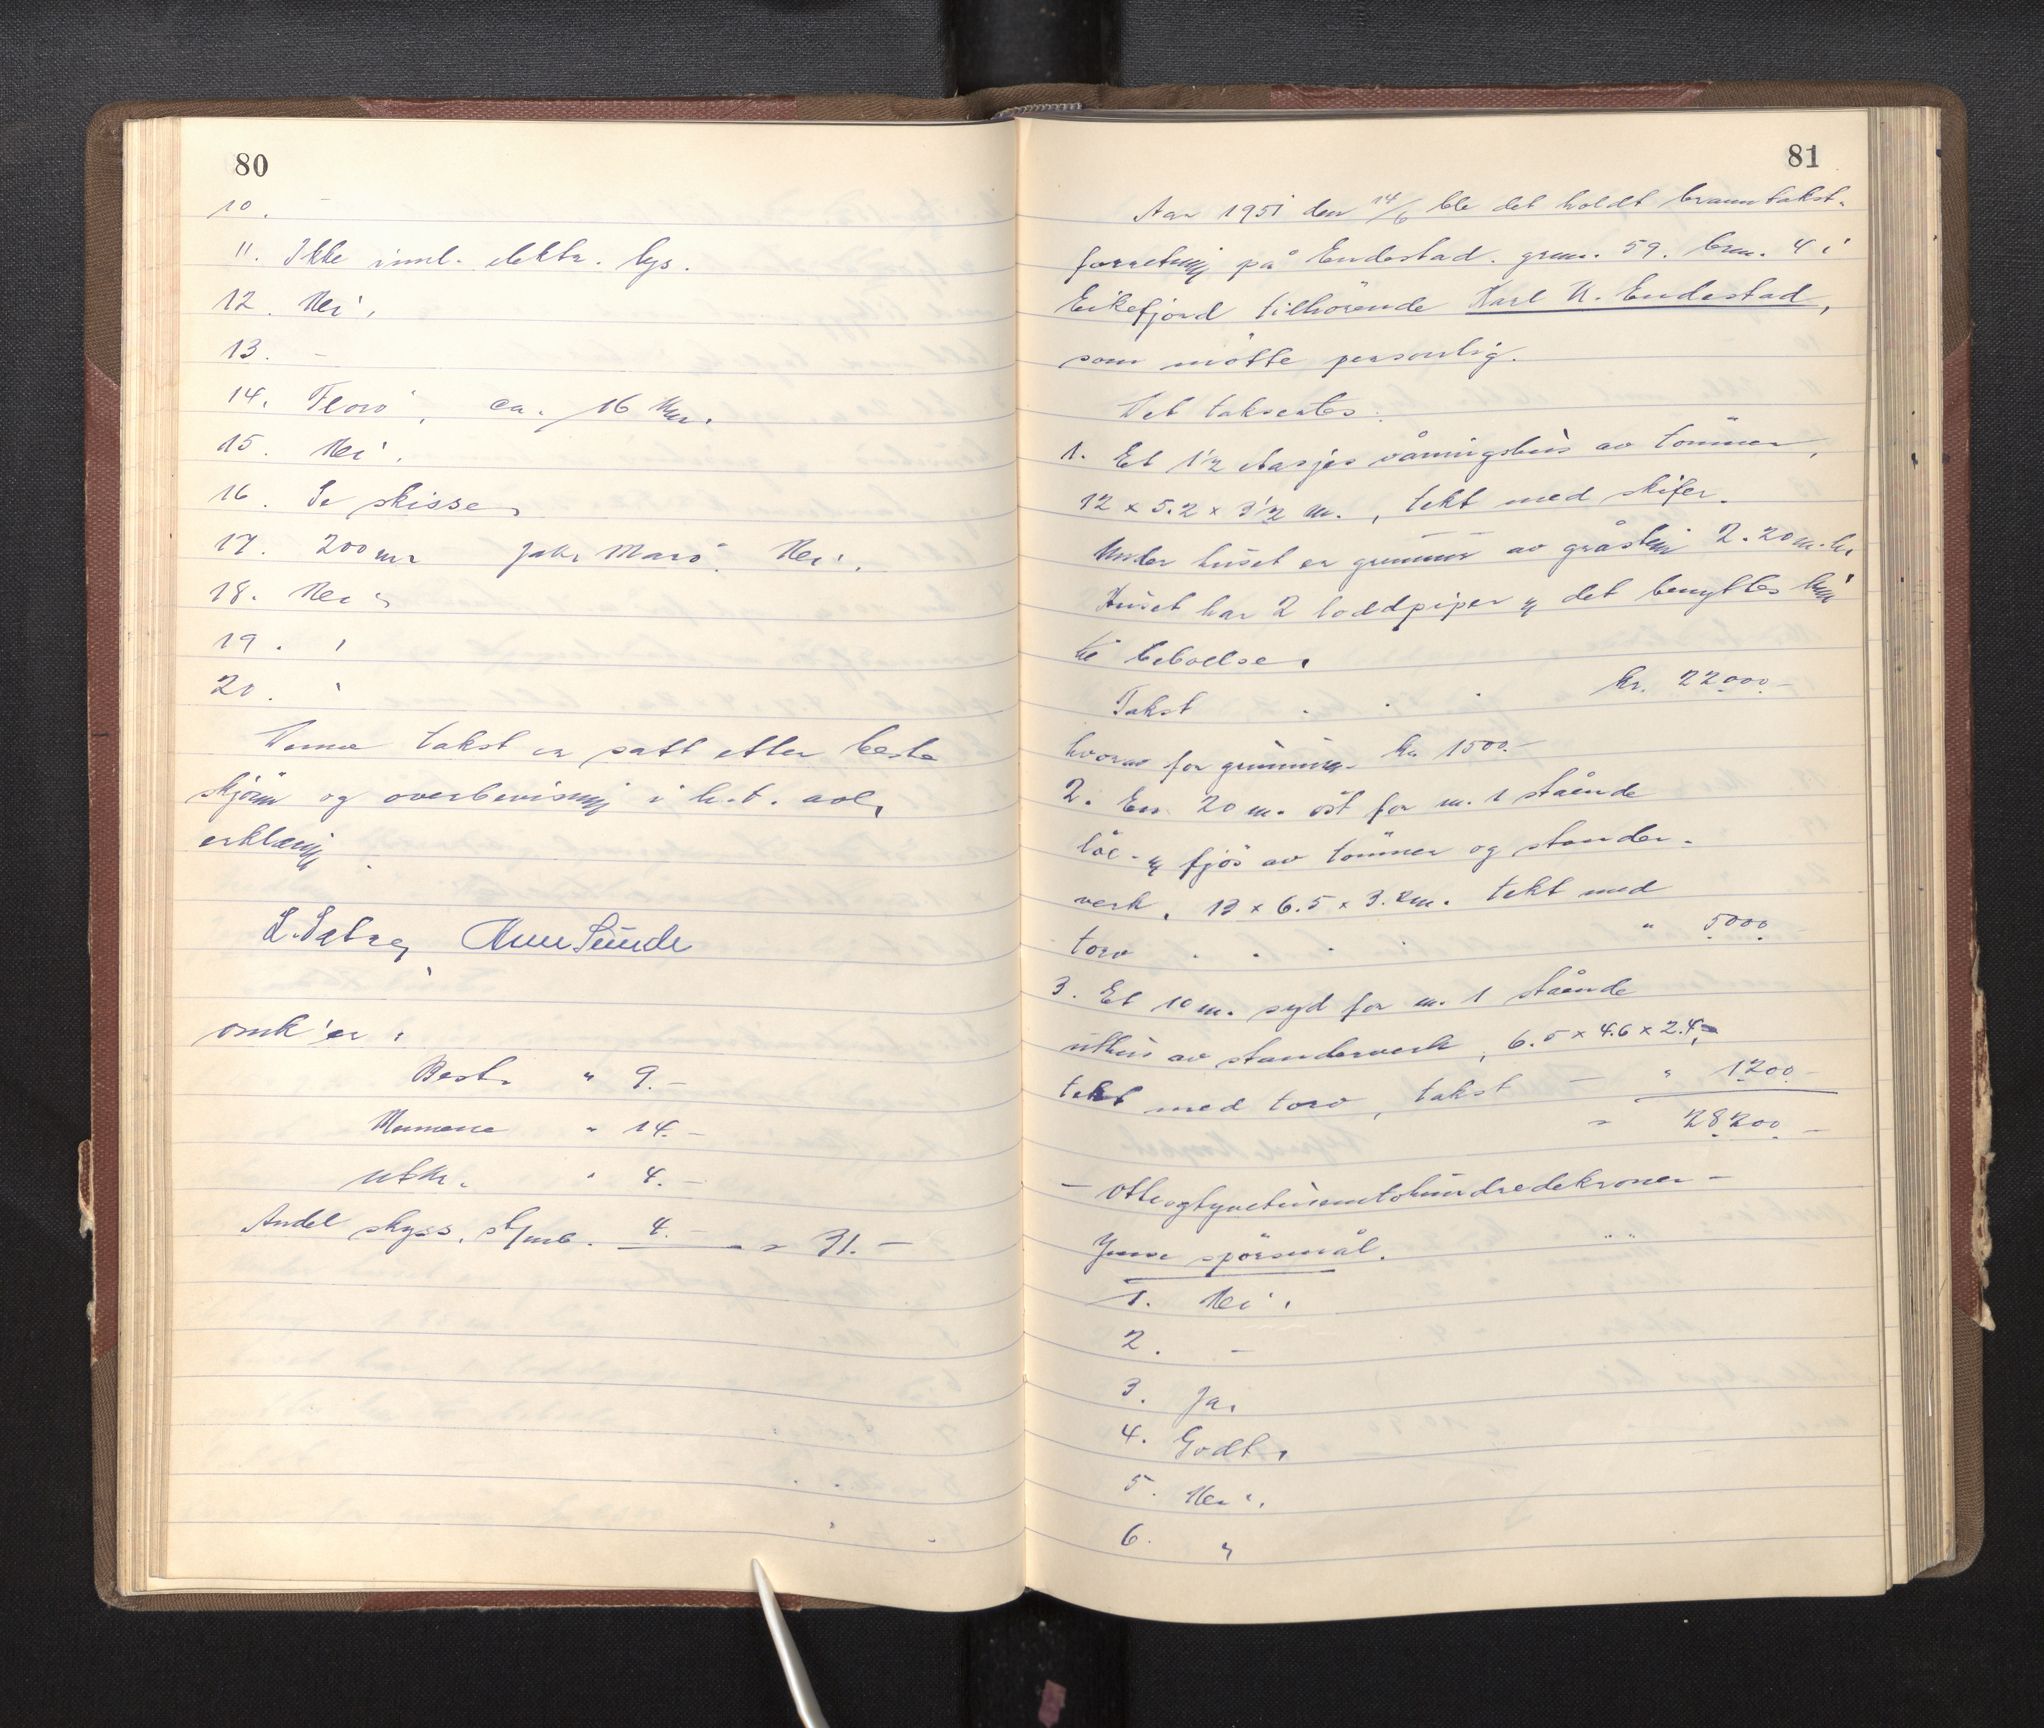 80
10. –
11. Ikke innl. elektr. lys.
12. Nei.
13. –
14. Florö, ca. 16 km.
15. Nei.
16. Se skisse.
17. 200 m Nei.
18. Nei.
19. "
20. "
Denne takst er satt etter beste
skjönn og overbevisning i h.t. avl.
erklæring.
L. Sætre,
omk'er:
Best. " 9.–
Mennene " 14.–
utskr. " 4.–
Andel skyss, 4.– " 31.–
81
Aar 1951 den 14/6 ble det holdt branntakst-
forretning på Endestad. grnr. 59. brn. 4 i
Eikefjord tilhörende Karl N. Endestad,
som mötte personlig.
Det taksertes:
1. Et 1½ etasjes våningshus av tömmer,
12 x 5.2 x 3½ m., tekt med skifer.
Under huset er grunnmur av gråstein 2.20 m. h.
Huset har 2 loddpiper og det benyttes kun
til beboelse.
Takst . . . kr. 22000.–
hvorav for grunnmur. kr. 1500.–
2. En 20 m. öst for nr. 1 stående
löe- og fjös av tömmer og stender-
verk, 13 x 6.5 x 3.2 m. tekt med
torv . . . " 5000.
3. Et 10 m. syd for nr. 1 stående
uthus av stenderverk, 6.5 x 4.6 x 2.4,
tekt med torv, takst – " 1200.–
" 28200.–
– Otteogtyvetusentohundredekroner –
Spörsmål.
1. Nei.
2. –
3. Ja.
4. Godt.
5. Nei.
6. "